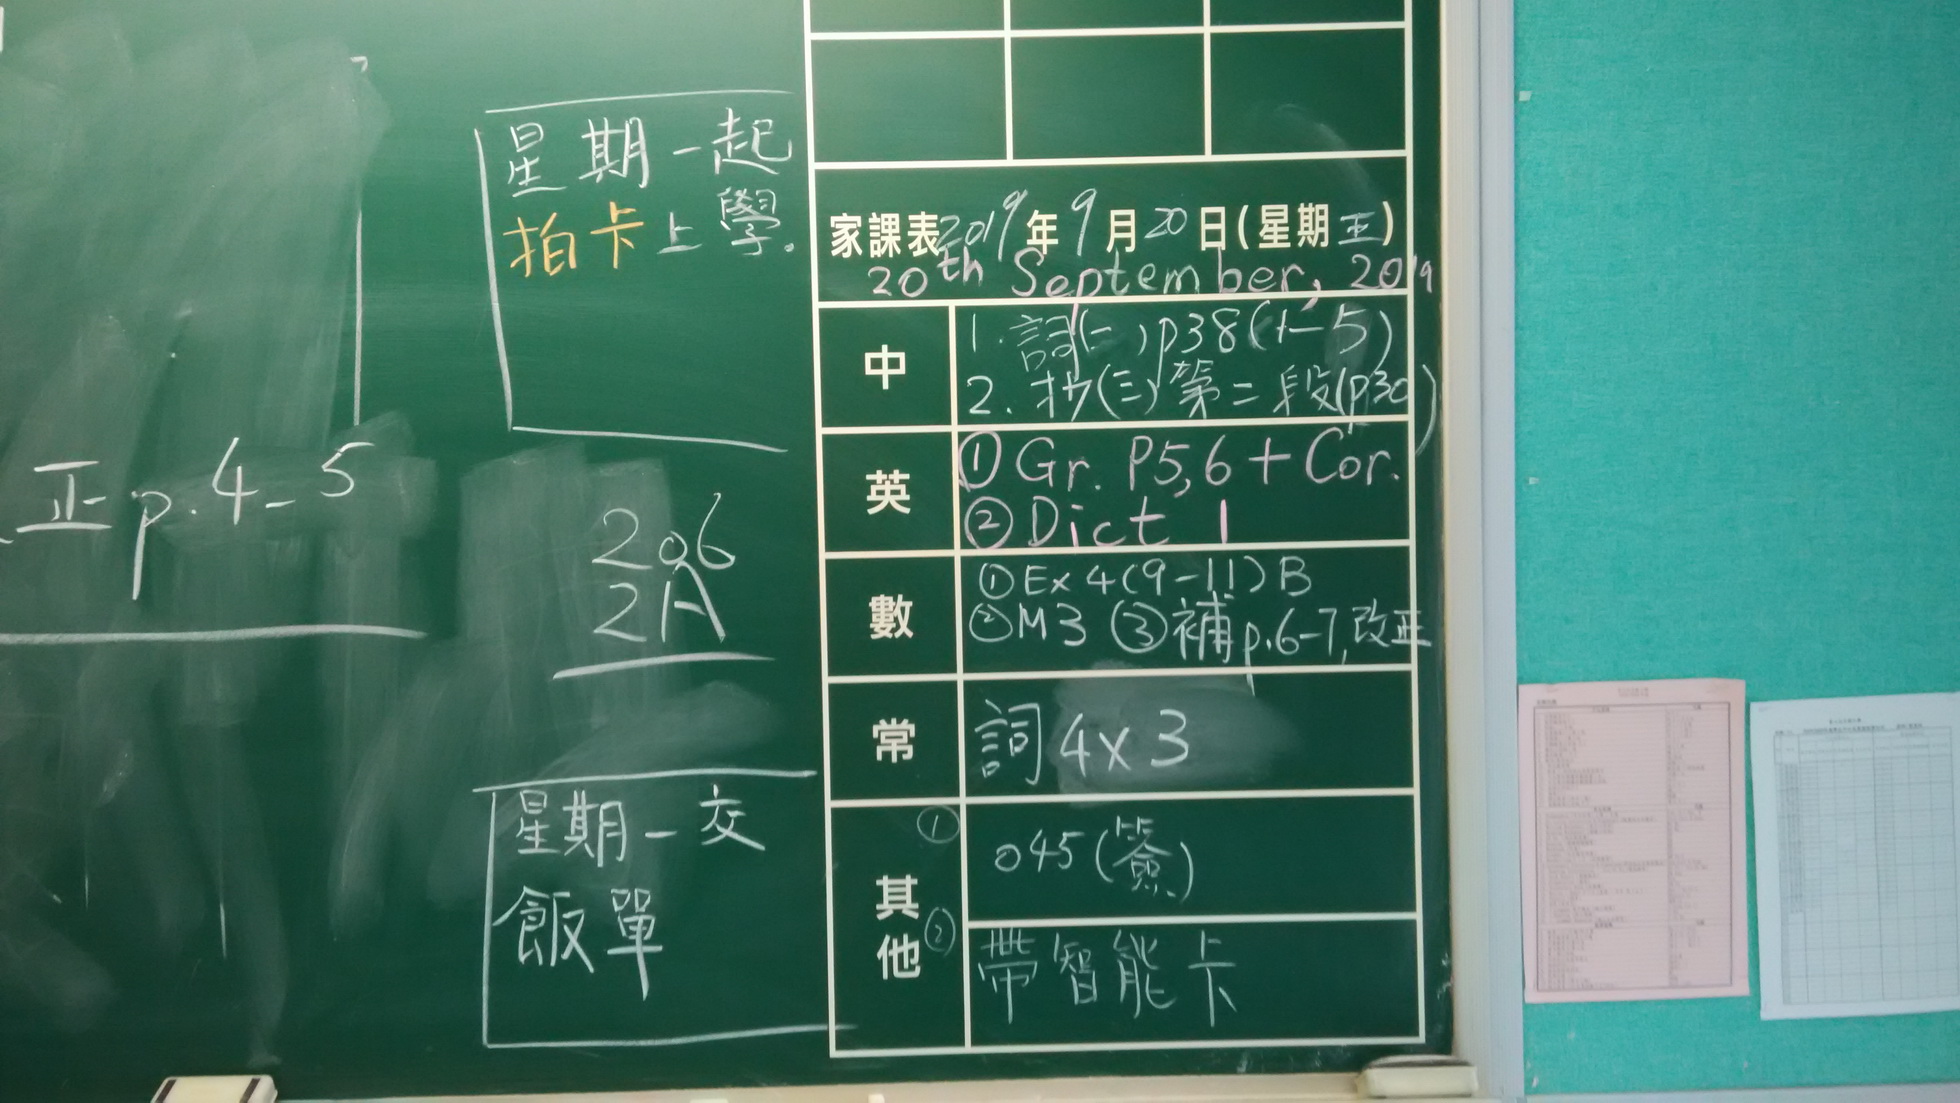 星期一起
拍卡上學。
正 p.4-5
206
2A
星期一交
飯單
家課表2019年9月20日(星期五)
20th September, 2019
中
1. 詞(二)p38(1-5)
2. 抄(三)第二段(p30)
英
① Gr. P5,6 + Cor.
② Dict 1
數
① Ex 4(9-11)B
② M3 ③ 補p.6-7,改正
常
詞4x3
其他
① 045(簽)
② 帶智能卡